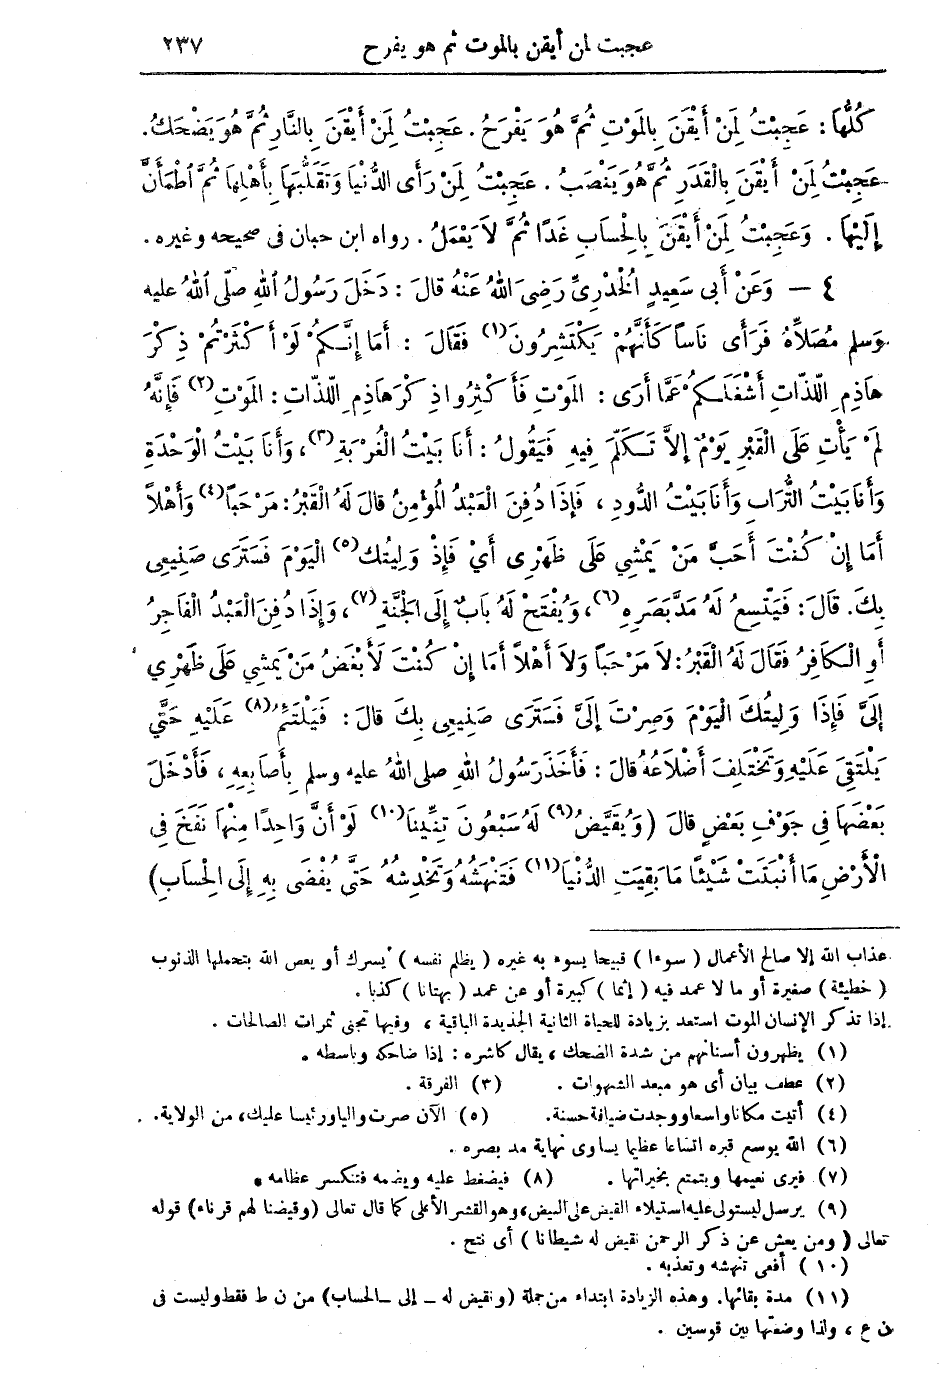 عجبت لمن أيقن بالموت ثم هو يفرح ٢٣٧
كُلُّهَا : عَجِبْتُ لِمَنْ أَيْقَنَ بِالْمَوْتِ ثُمَّ هُوَ يَفْرَحُ . عَجِبْتُ لِمَنْ أَيْقَنَ بِالنَّارِ ثُمَّ هُوَ يَضْحَكُ .
عَجِبْتُ لِمَنْ أَيْقَنَ بِالْقَدَرِ ثُمَّ هُوَ يَنْصَبُ . عَجِبْتُ لِمَنْ رَأَى الدُّنْيَا وَتَقَلُّبَهَا بِأَهْلِهَا ثُمَّ اطْمَأَنَّ
إِلَيْهَا . وَعَجِبْتُ لِمَنْ أَيْقَنَ بِالْحِسَابِ غَدًا ثُمَّ لَا يَعْمَلُ . رواه ابن حبان فى صحيحه وغيره .
٤ — وَعَنْ أَبِى سَعِيدٍ الْخُدْرِىِّ رَضِىَ اللهُ عَنْهُ قَالَ : دَخَلَ رَسُولُ اللهِ صلّى اللهُ عليه
وسلم مُصَلَّاهُ فَرَأَى نَاساً كَأَنَّهُمْ يَكْتَشِرُونَ(١) فَقَالَ : أَمَا إِنَّكُمْ لَوْ أَكْثَرْتُمْ ذِكْرَ
هَاذِمِ اللَّذَّاتِ أَشْغَلَكُمْ عَمَّا أَرَى : الْمَوْتِ فَأَكْثِرُوا ذِكْرَ هَاذِمِ اللَّذَّاتِ : الْمَوْتِ(٢) فَإِنَّهُ
لَمْ يَأْتِ عَلَى الْقَبْرِ يَوْمٌ إِلاَّ تَكَلَّمَ فِيهِ فَيَقُولُ : أَنَا بَيْتُ الْغُرْبَةِ(٣)، وَأَنَا بَيْتُ الْوَحْدَةِ
وَأَنَا بَيْتُ التُّرَابِ وَأَنَا بَيْتُ الدُّودِ ، فَإِذَا دُفِنَ الْعَبْدُ الْمُؤْمِنُ قَالَ لَهُ الْقَبْرُ : مَرْحَباً(٤) وَأَهْلاً
أَمَا إِنْ كُنْتَ أَحَبَّ مَنْ يَمْشِي عَلَى ظَهْرِى أَىْ فَإِذْ وَلِيتُكَ(٥) الْيَوْمَ فَسَتَرَى صَنِيعِى
بِكَ. قَالَ: فَيَتَّسِعُ لَهُ مَدَّ بَصَرِهِ(٦)، وَيُفْتَحُ لَهُ بَابٌ إِلَى الْجَنَّةِ(٧)، وَإِذَا دُفِنَ الْعَبْدُ الْفَاجِرُ
أَوِ الْكَافِرُ فَقَالَ لَهُ الْقَبْرُ: لاَ مَرْحَباً وَلاَ أَهْلاً أَمَا إِنْ كُنْتَ لَأَبْغَضُ مَنْ يَمْشِي عَلَى ظَهْرِي
إِلَىَّ فَإِذَا وَلِيتُكَ الْيَوْمَ وَصِرْتَ إِلَىَّ فَسَتَرَى صَنِيعِى بِكَ قَالَ : فَيَلْتَئِمُ(٨) عَلَيْهِ حَتَّى
يَلْتَقِىَ عَلَيْهِ وَتَخْتَلِفَ أَضْلَاعُهُ قَالَ : فَأَخَذَ رَسُولُ اللهِ صلى اللهُ عليه وسلم بِأَصَابِعِهِ ، فَأَدْخَلَ
بَعْضَهَا فِى جَوْفِ بَعْضٍ قَالَ (وَيُقَيَّضُ(٩) لَهُ سَبْعُونَ تِنِّينًا(١٠) لَوْ أَنَّ وَاحِدًا مِنْهَا نَفَخَ فِى
الْأَرْضِ مَا أَنْبَتَتْ شَيْئًا مَا بَقِيَتِ الدُّنْيَا(١١) فَتَنْهَشُهُ وَتَخْدِشُهُ حَتَّى يُفْضَى بِهِ إِلَى الْحِسَابِ)
عذاب الله إلا صالح الأعمال ( سوءا ) قبيحا يسوء به غيره ( يظلم نفسه ) يسرك أو يعص الله بتحملها الذنوب
( خطيئة ) صغيرة أو ما لا عمد فيه ( إثما ) كبيرة أو عن عمد ( بهتانا ) كذبا .
إذا تذكر الإنسان الموت استعد بزيادة للحياة الثانية الجديدة الباقية ، وفيها تجنى ثمرات الصالحات .
(١) يظهرون أسنانهم من شدة الضحك ، يقال كاشره : إذا ضاحكه وباسطه .
(٢) عطف بيان أى هو مبعد الشهوات . (٣) الفرقة .
(٤) أتيت مكانا واسعا ووجدت ضيافة حسنة. (٥) الآن صرت واليا ورئيسا عليك، من الولاية. .
(٦) الله يوسع قبره اتساعا عظيما يساوى نهاية مد بصره .
(٧) فيرى نعيمها ويتمتع بخيراتها . (٨) فيضغط عليه ويضمه فتنكسر عظامه .
(٩) يرسل ليستولى عليه استيلاء القيض على البيض، وهو القشر الأعلى كما قال تعالى (وقيضنا لهم قرناء) قوله
تعالى ( ومن يعش عن ذكر الرحمن نقيض له شيطانا ) أى نتح .
(١٠) أفعى تنهشه وتعذبه .
(١١) مدة بقائها. وهذه الزيادة ابتداء من جملة (ونقيض له ــ إلى ــ الحساب) من ن ط فقط وليست فى
ن ع ، ولذا وضعتها بين قوسين .